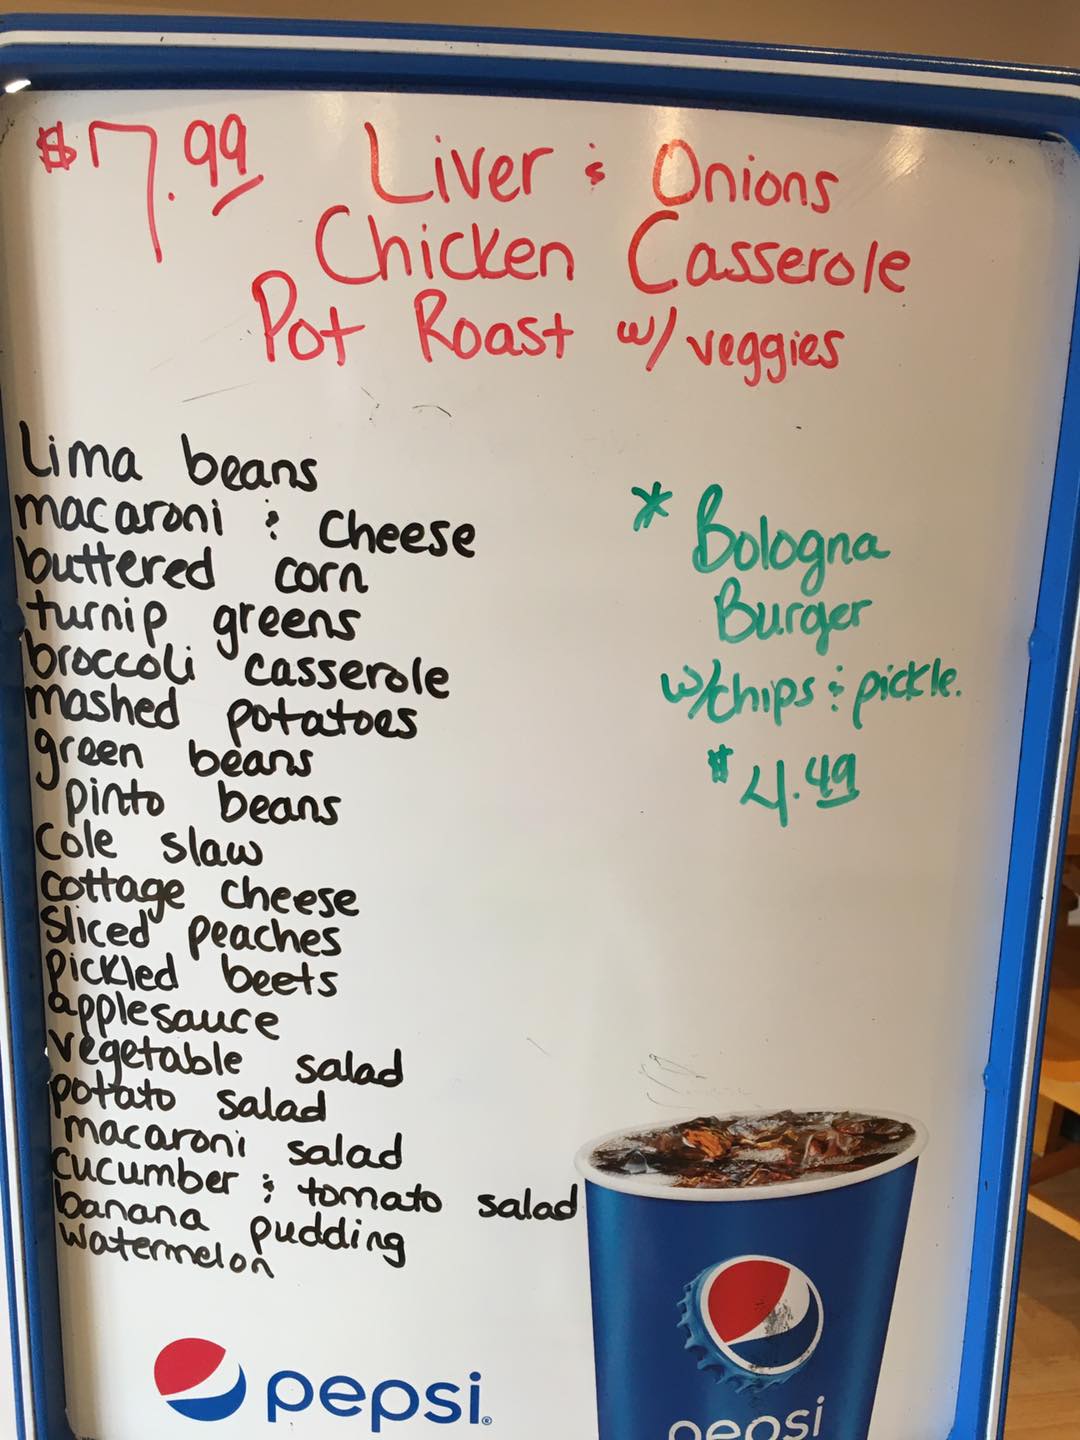 $7.99 Liver & Onions
Chicken Casserole
Pot Roast w/ veggies
Lima beans
macaroni & cheese
buttered corn
turnip greens
broccoli casserole
mashed potatoes
green beans
pinto beans
cole slaw
cottage cheese
sliced peaches
pickled beets
applesauce
vegetable salad
potato salad
macaroni salad
cucumber & tomato salad
banana pudding
watermelon
* Bologna
Burger
w/chips & pickle.
$4.49
pepsi®
pepsi